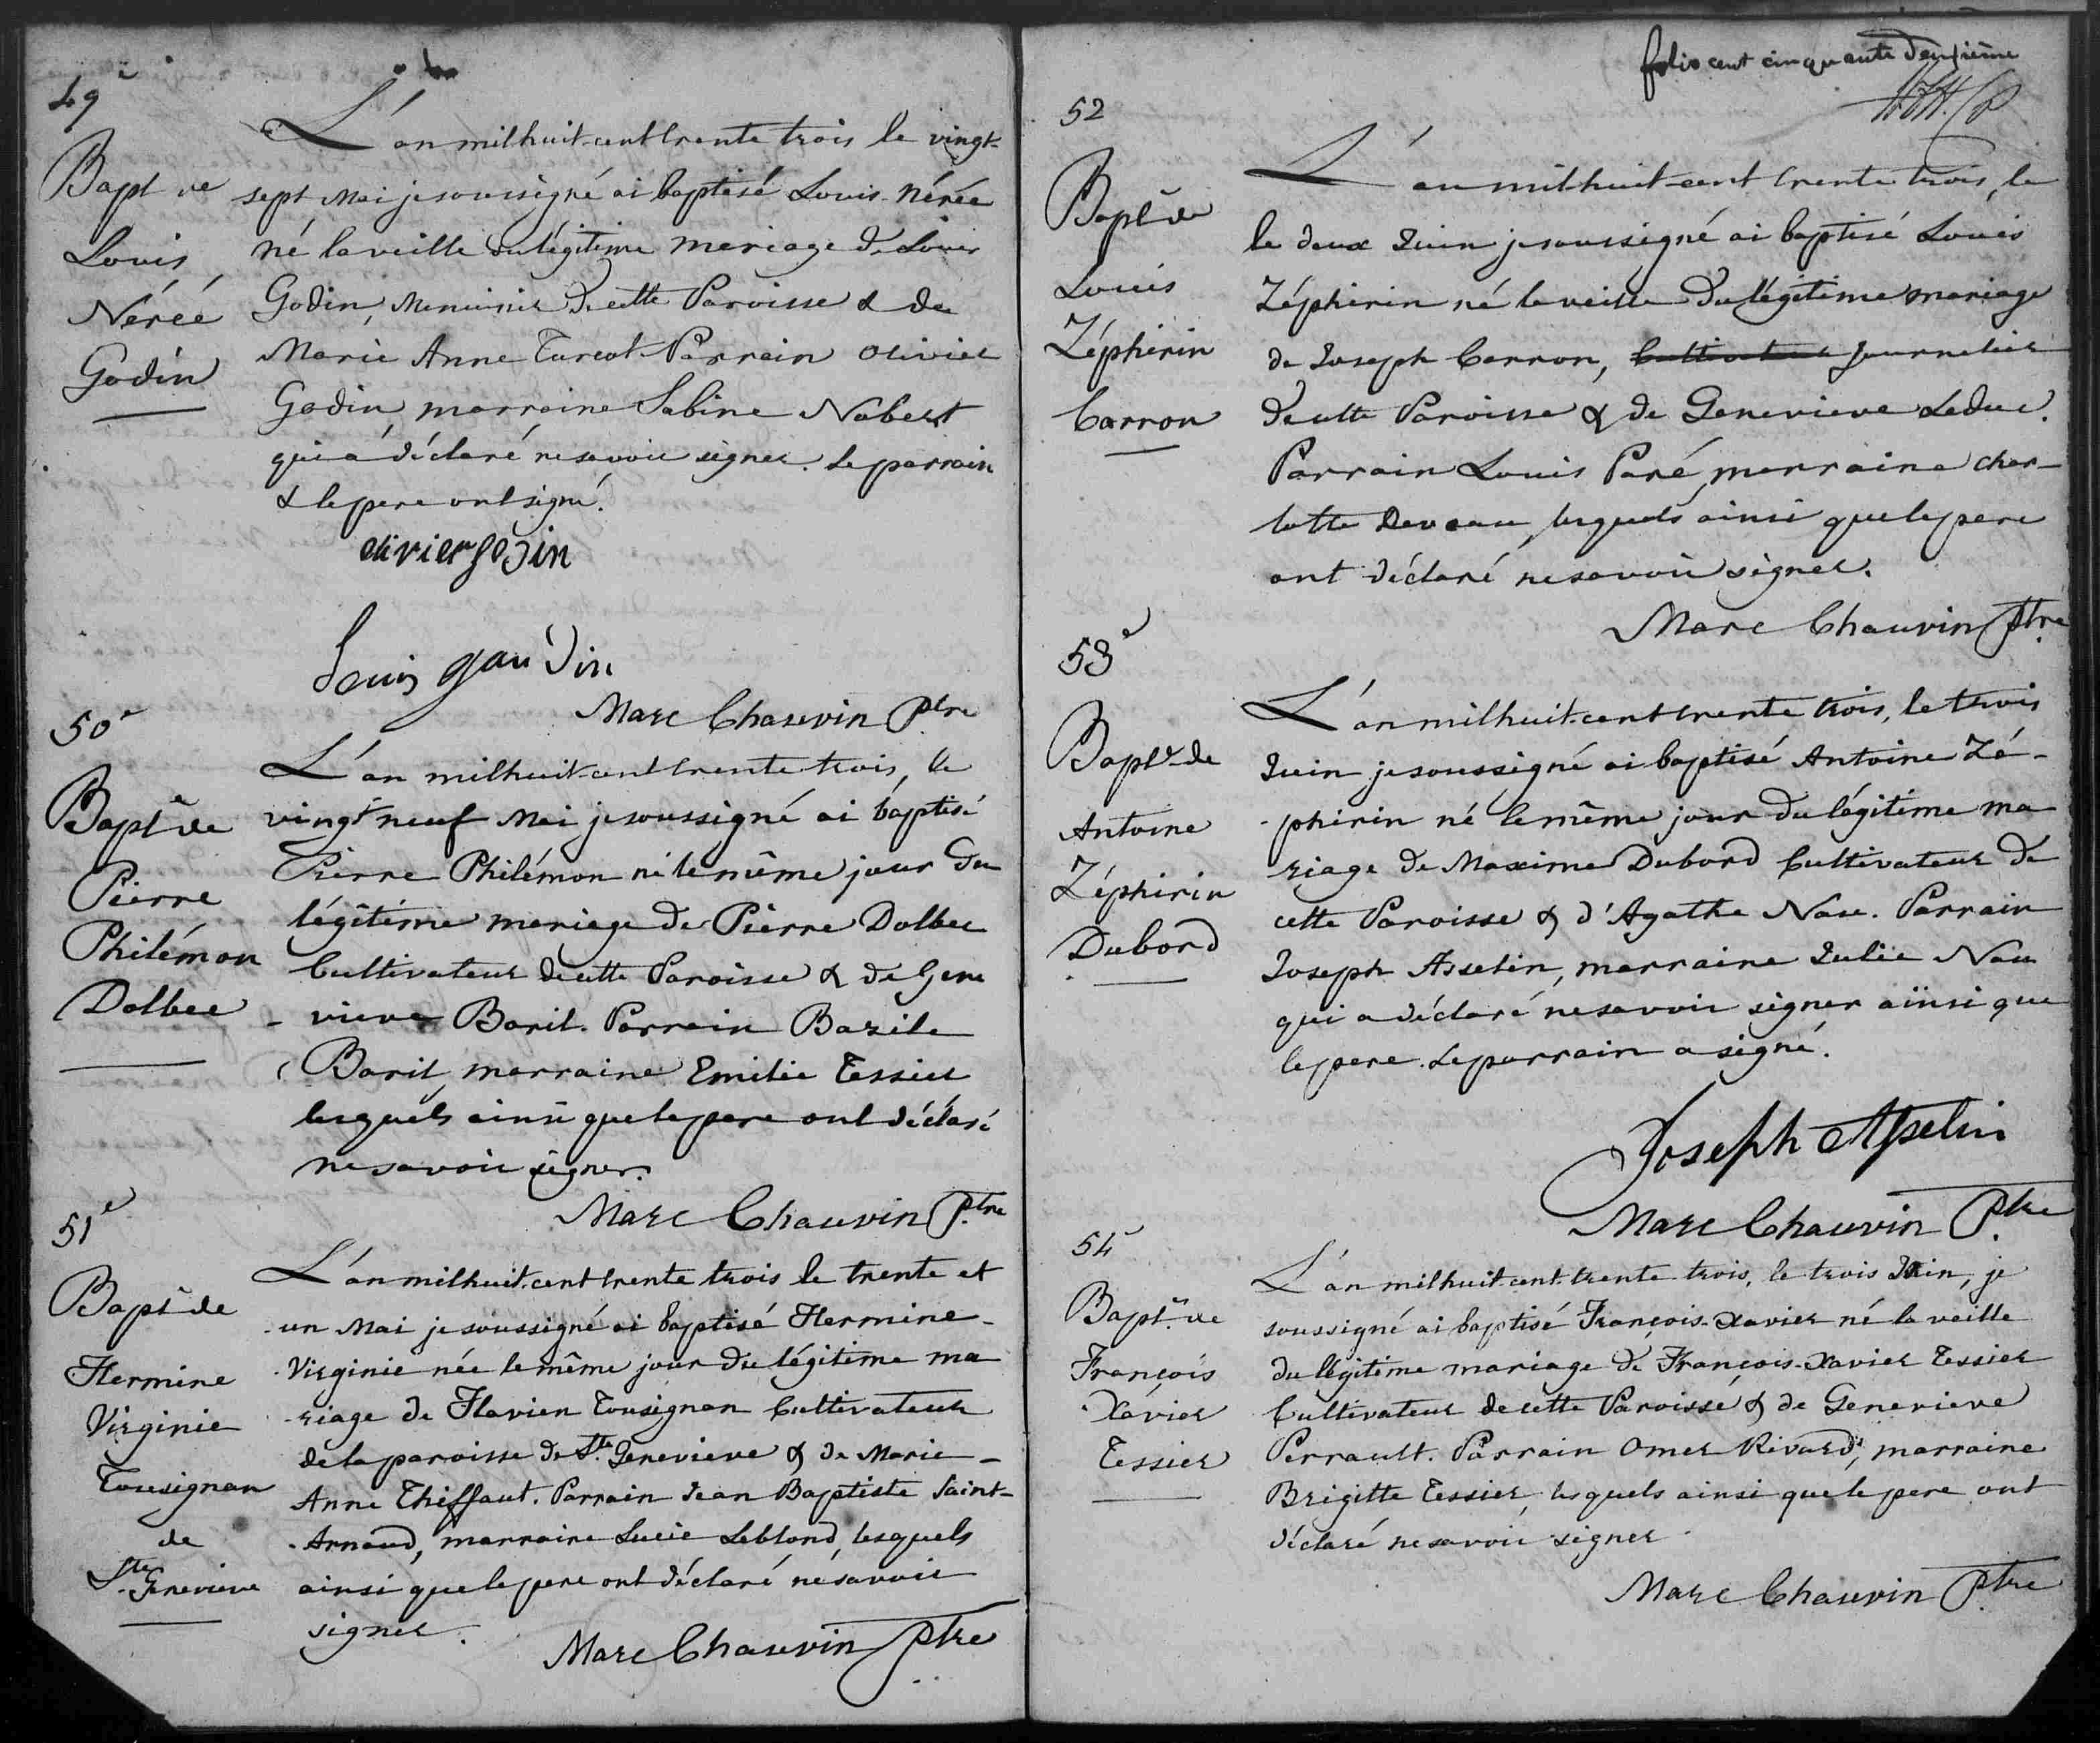 49e
Bapt de
Louis
Néréé
Godin
L'an mil huit cent trente trois le vingt-
sept Mai je soussigné ai baptisé Louis-Nérée
né la veille du légitime mariage de Louis
Godin, Menuisier de cette Paroisse & de
Marie Anne Turcot Parrain Olivier
Godin, marraine Sabine Nobert
qui a déclaré ne savoir signer. Le parrain
& le pere ont signé.
olivier godin
Louis gaudin
Marc Chauvin Ptre
50e
Bapt de
Pierre
Philémon
Dolbec
L'an mil huit cent trente trois, le
vingt neuf Mai je soussigné ai baptisé
Pierre Philémon né le même jour du
légitime mariage de Pierre Dolbec
Cultivateur de cette Paroisse & de Gene
- vieve Baril. Parrain Bazile
Baril, marraine Emilie Tessier
lesquels ainsi que le pere ont déclaré
ne savoir signer.
Marc Chauvin Ptre
51e
Bapt de
Hermine
Virginie
Tousignan
de
Ste Genevieve
L'an mil huit cent trente trois le trente et
un Mai je soussigné ai baptisé Hermine-
Virginie née le même jour du légitime ma
-riage de Flavien Tousignan Cultivateur
de la paroisse de Ste. Genevieve & de Marie-
Anne Thiffaut. Parrain Jean Baptiste Saint-
-Arnaud, marraine Lucie Leblond, lesquels
ainsi que le pere ont déclaré ne savoir
signer.
Marc Chauvin Ptre
folio cent cinquante deuxième
52
Bapt de
Louis
Zéphirin
Carron
L'an mil huit cent trente trois, le
le deux Juin je soussigné ai baptisé Louis
Zéphirin né la veille du légitime mariage
de Joseph Carron, Cultivateur Journalier
de cette Paroisse & de Genevieve Leduc.
Parrain Louis Paré, marraine Char-
lotte Deveau, lesquels ainsi que le pere
ont déclaré ne savoir signer.
Marc Chauvin Ptre
53e
Bapt. de
Antoine
Zéphirin
Dubord
L'an mil huit cent trente trois, le trois
Juin je soussigné ai baptisé Antoine Zé-
-phirin né le même jour du légitime ma
riage de Maxime Dubord Cultivateur de
cette Paroisse & d'Agathe Nau. Parrain
Joseph Asselin, marraine Julie Nau
qui a déclaré ne savoir signer ainsi que
le pere. Le parrain a signé.
Joseph Asselin
Marc Chauvin Ptre
54e
Bapt. de
François
Xavier
Tessier
L'an mil huit cent trente trois, le trois Juin, je
soussigné ai baptisé François-Xavier né la veille
du légitime mariage de François-Xavier Tessier
Cultivateur de cette Paroisse & de Genevieve
Perrault. Parrain Omer Rivard, marraine
Brigitte Tessier, lesquels ainsi que le pere ont
déclaré ne savoir signer
Marc Chauvin Ptre